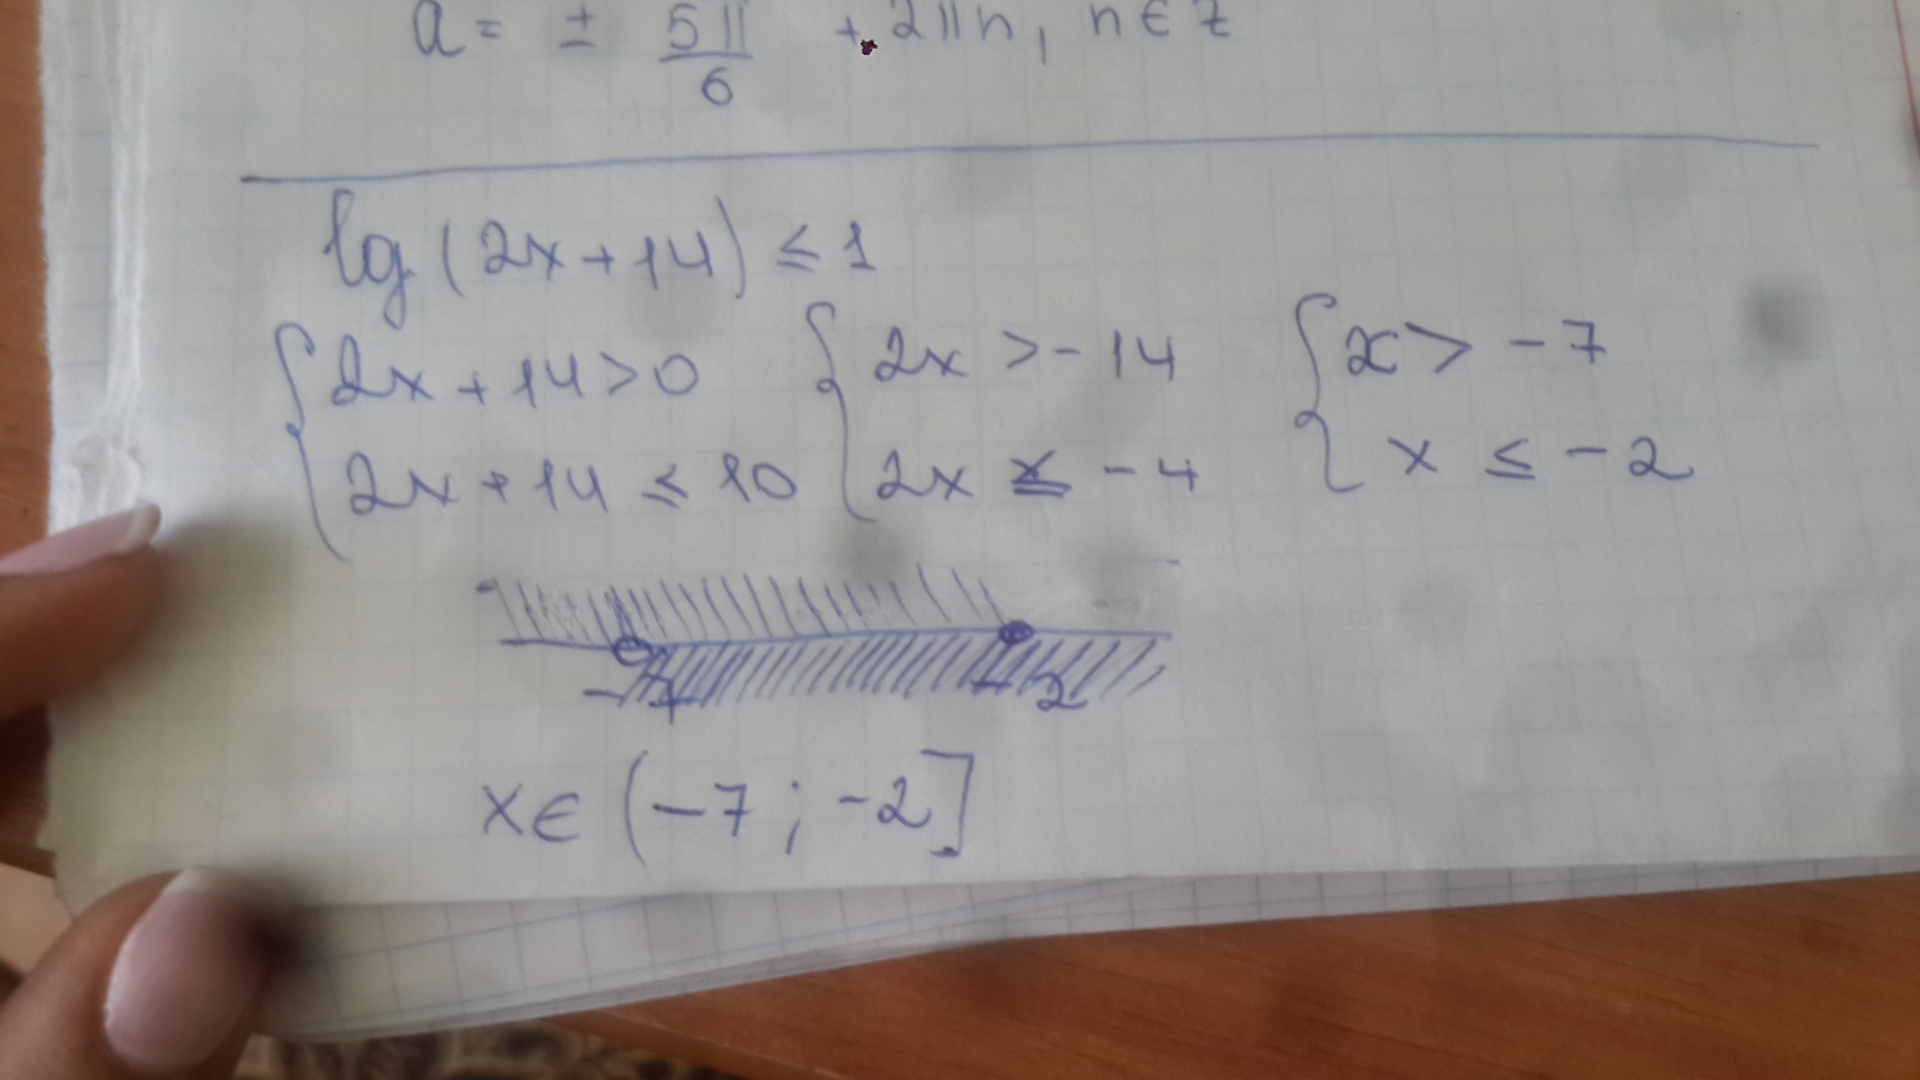 a = ± 5π/6 + 2πn, n ∈ z
lg(2x+14) ≤ 1
{ 2x+14>0 { 2x >-14 { x> -7
2x+14 ≤ 10 2x ≤ -4 x ≤ -2
-7 -2
x∈ (-7; -2]